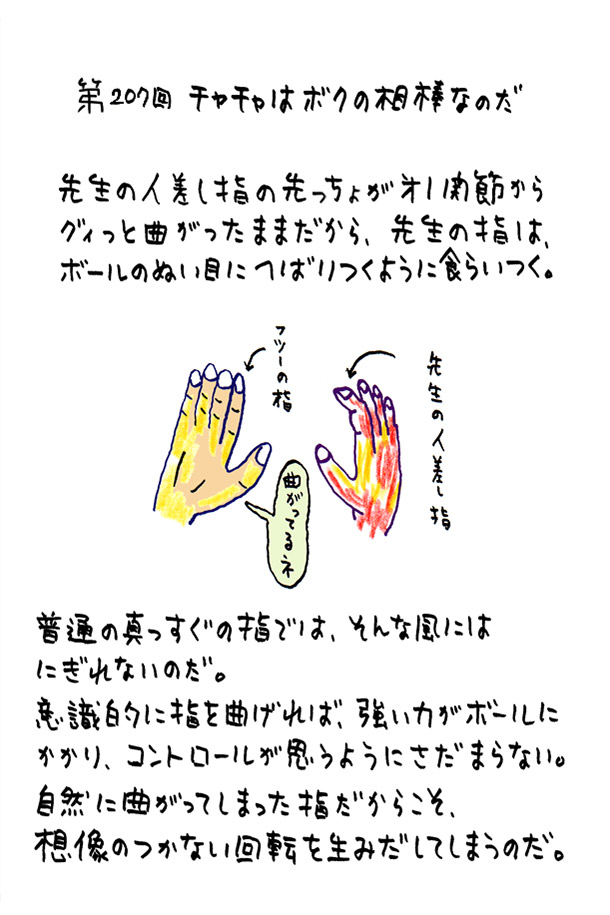 第207回 チャチャはボクの相棒なのだ
先生の人差し指の先っちょが才1関節から
グィっと曲がったままだから、先生の指は、
ボールのぬい目にへばりつくように食らいつく。
フツーの指
先生の人差し指
曲がってるネ
普通の真っすぐの指では、そんな風には
にぎれないのだ。
意識的に指を曲げれば、強い力がボールに
かかり、コントロールが思うようにさだまらない。
自然に曲がってしまった指だからこそ、
想像のつかない回転を生みだしてしまうのだ。